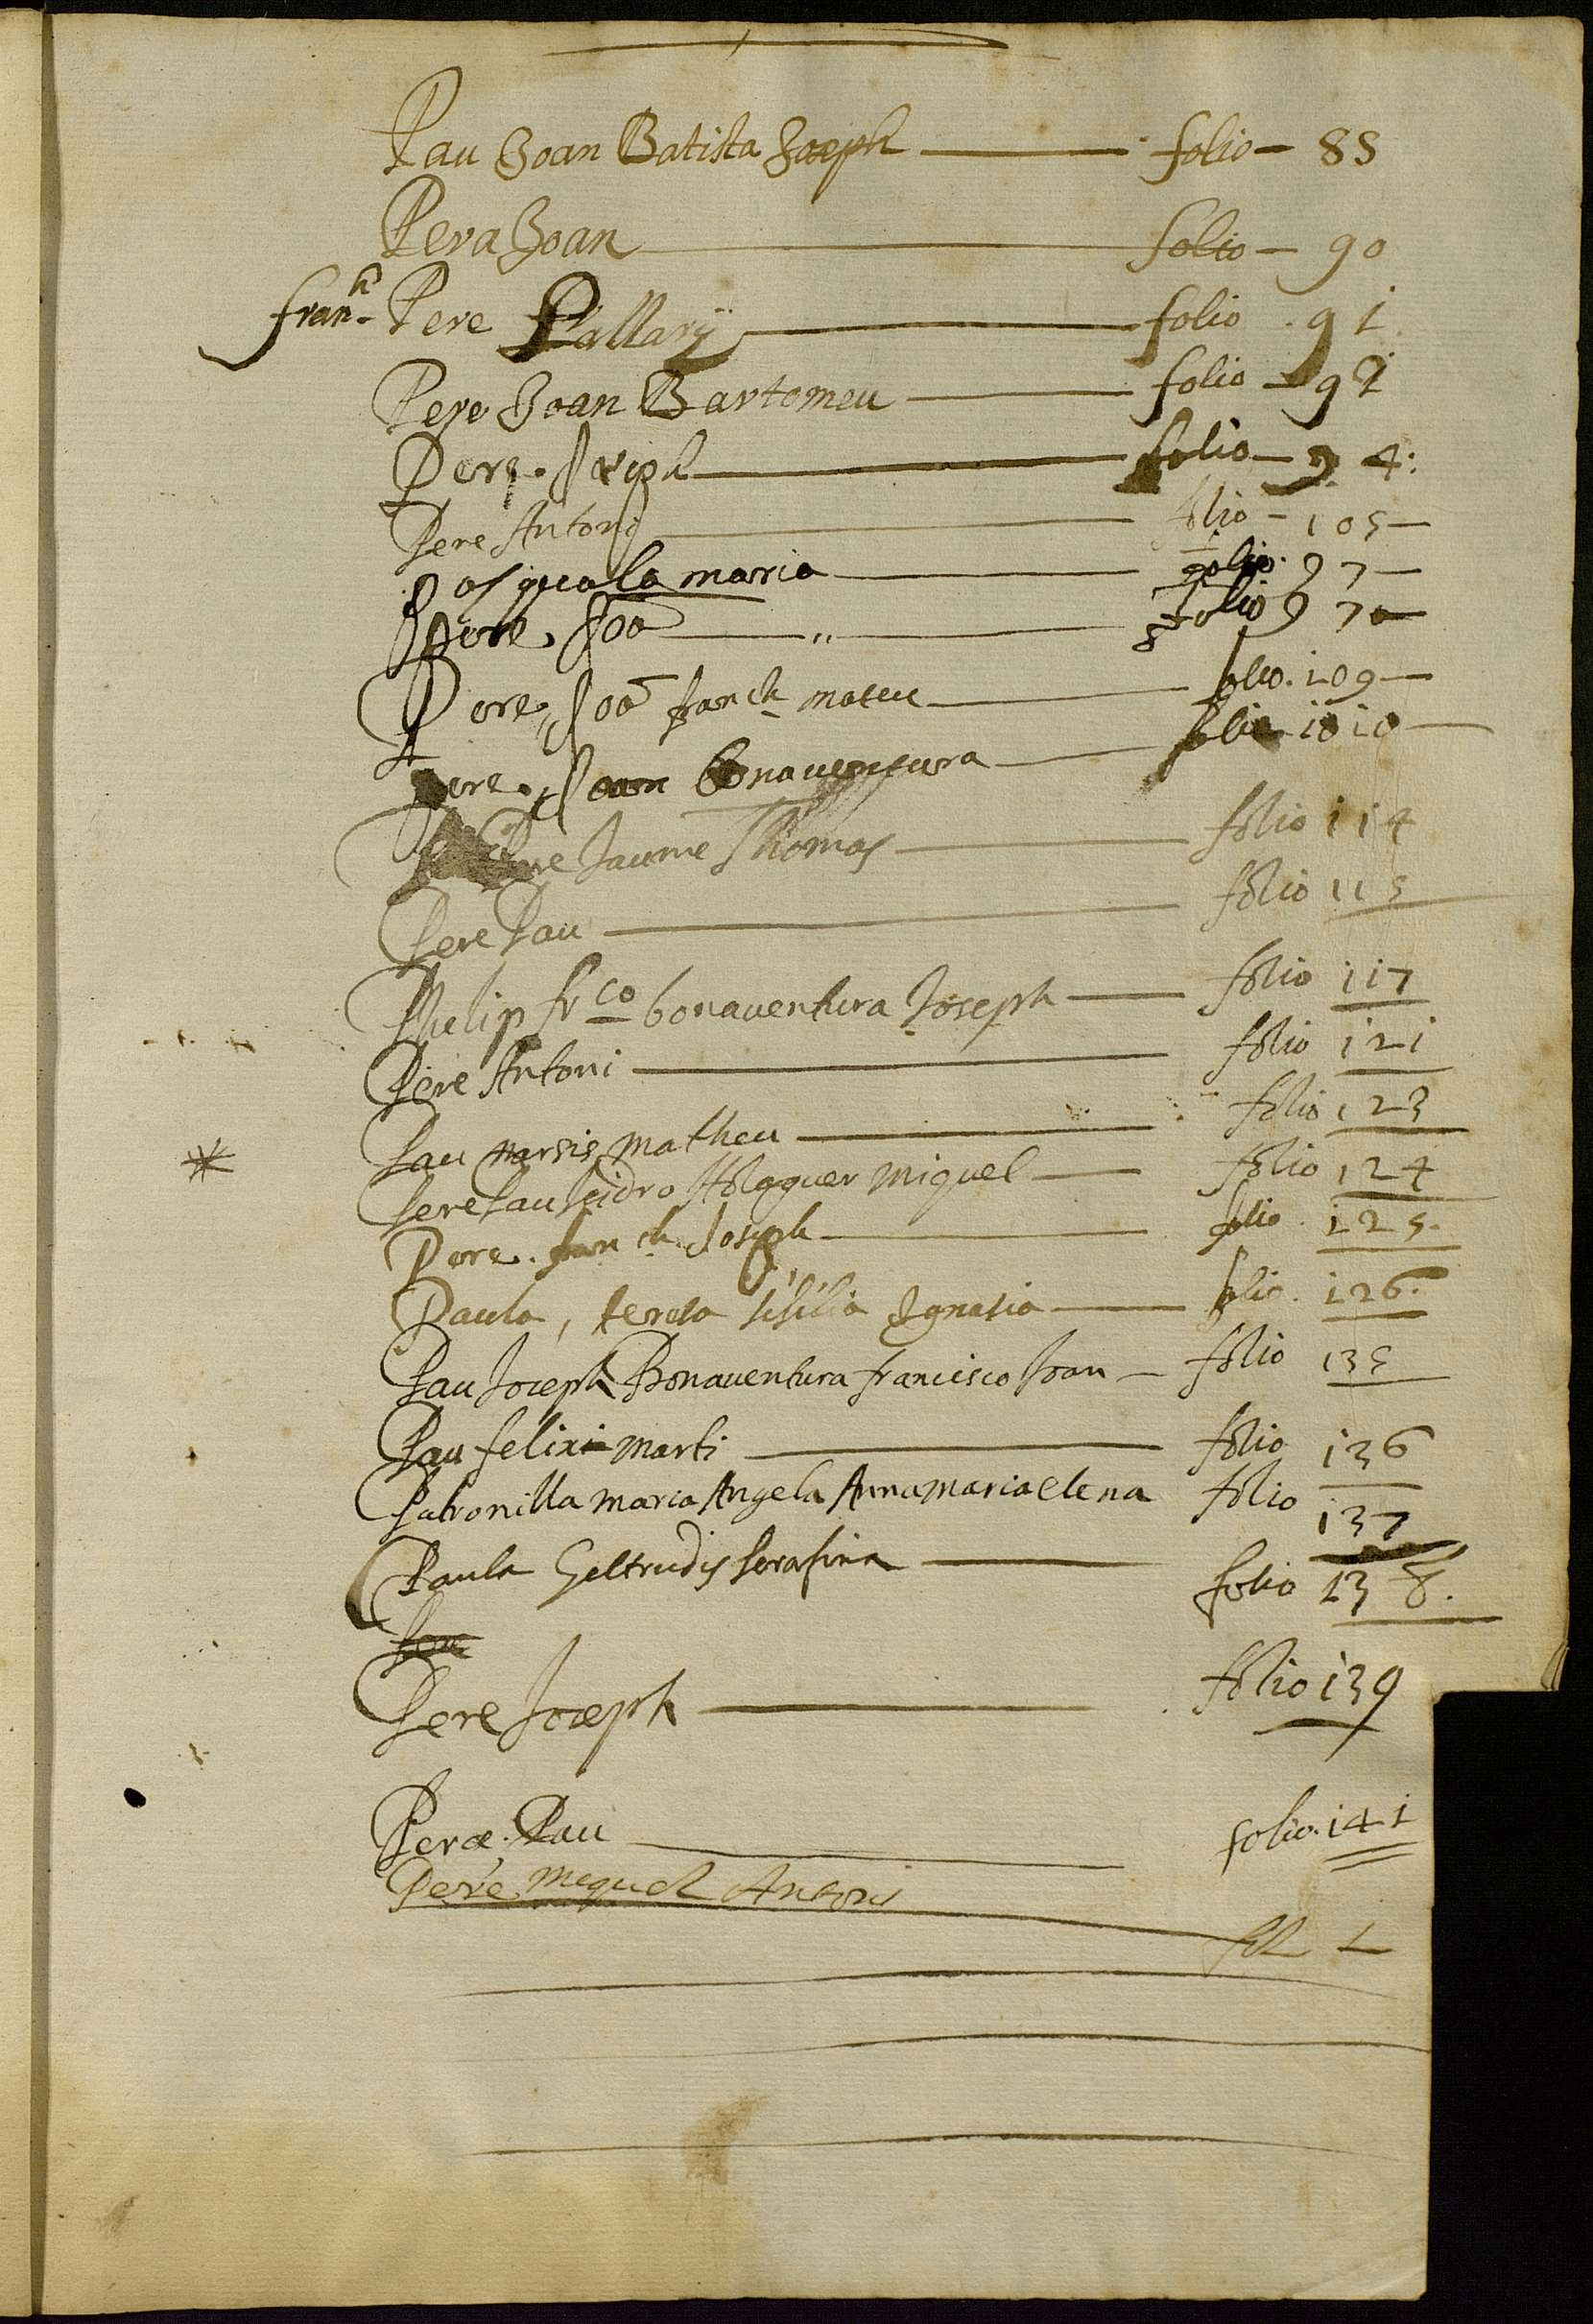 Pau Joan Batista Joseph folio - 85
Pera Joan folio - 90
fran.ch Pere Pallarÿ folio . 91
Pere Joan Bartomeu folio - 91
Pere. Joseph folio - 94.
Pere Antoni folio - 105 -
Pasquala maria folio. 97 -
Pere, Joā " folio 97
Pere, Joā franch mateu folio. 109 -
Pere, Joan bonaventura folio 1010
Pere Jaume Thomas folio 114
Pere Pau folio 115
Phelip frco bonaventura Joseph folio 117
Pere Antoni folio 121
Pau narsis matheu folio 123
Pere Pau Isidro Holaguer Miguel folio 124
Pere. franch Joseph folio. 125.
Paula, teresa sisilia Ignasia folio. 126.
Pau Joseph Bonaventura francisco Joan folio 135
Pau felix marti folio 136
Patronilla maria Angela Anna maria elena folio 137
Paula Geltrudis serafina folio 138.
Pere Joseph folio 139
Pere. Pau folio. 141
Pere Miquel Antoni fol 1